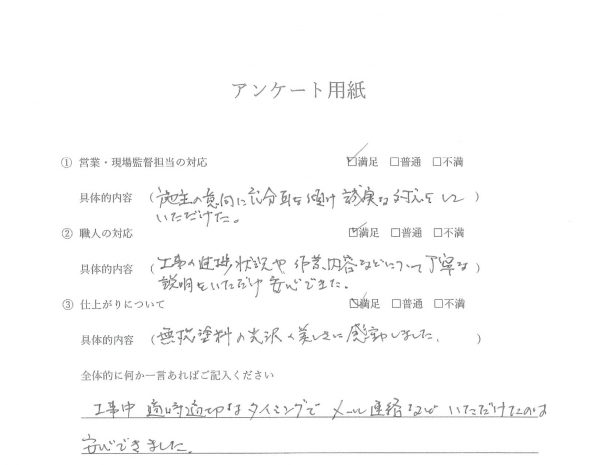 アンケート用紙
① 営業・現場監督担当の対応 ☑満足 □普通 □不満
具体的内容 (施主の意向に充分耳を傾け 誠実な対応をして)
いただけた。
② 職人の対応 ☑満足 □普通 □不満
具体的内容 (工事の進捗状況や 作業内容などについて丁寧な)
説明をいただけ 安心できた。
③ 仕上がりについて ☑満足 □普通 □不満
具体的内容 (無機塗料の光沢の美しさに感動しました。)
全体的に何か一言あればご記入ください
工事中 適時適切なタイミングで メール連絡など いただけたのは
安心できました。